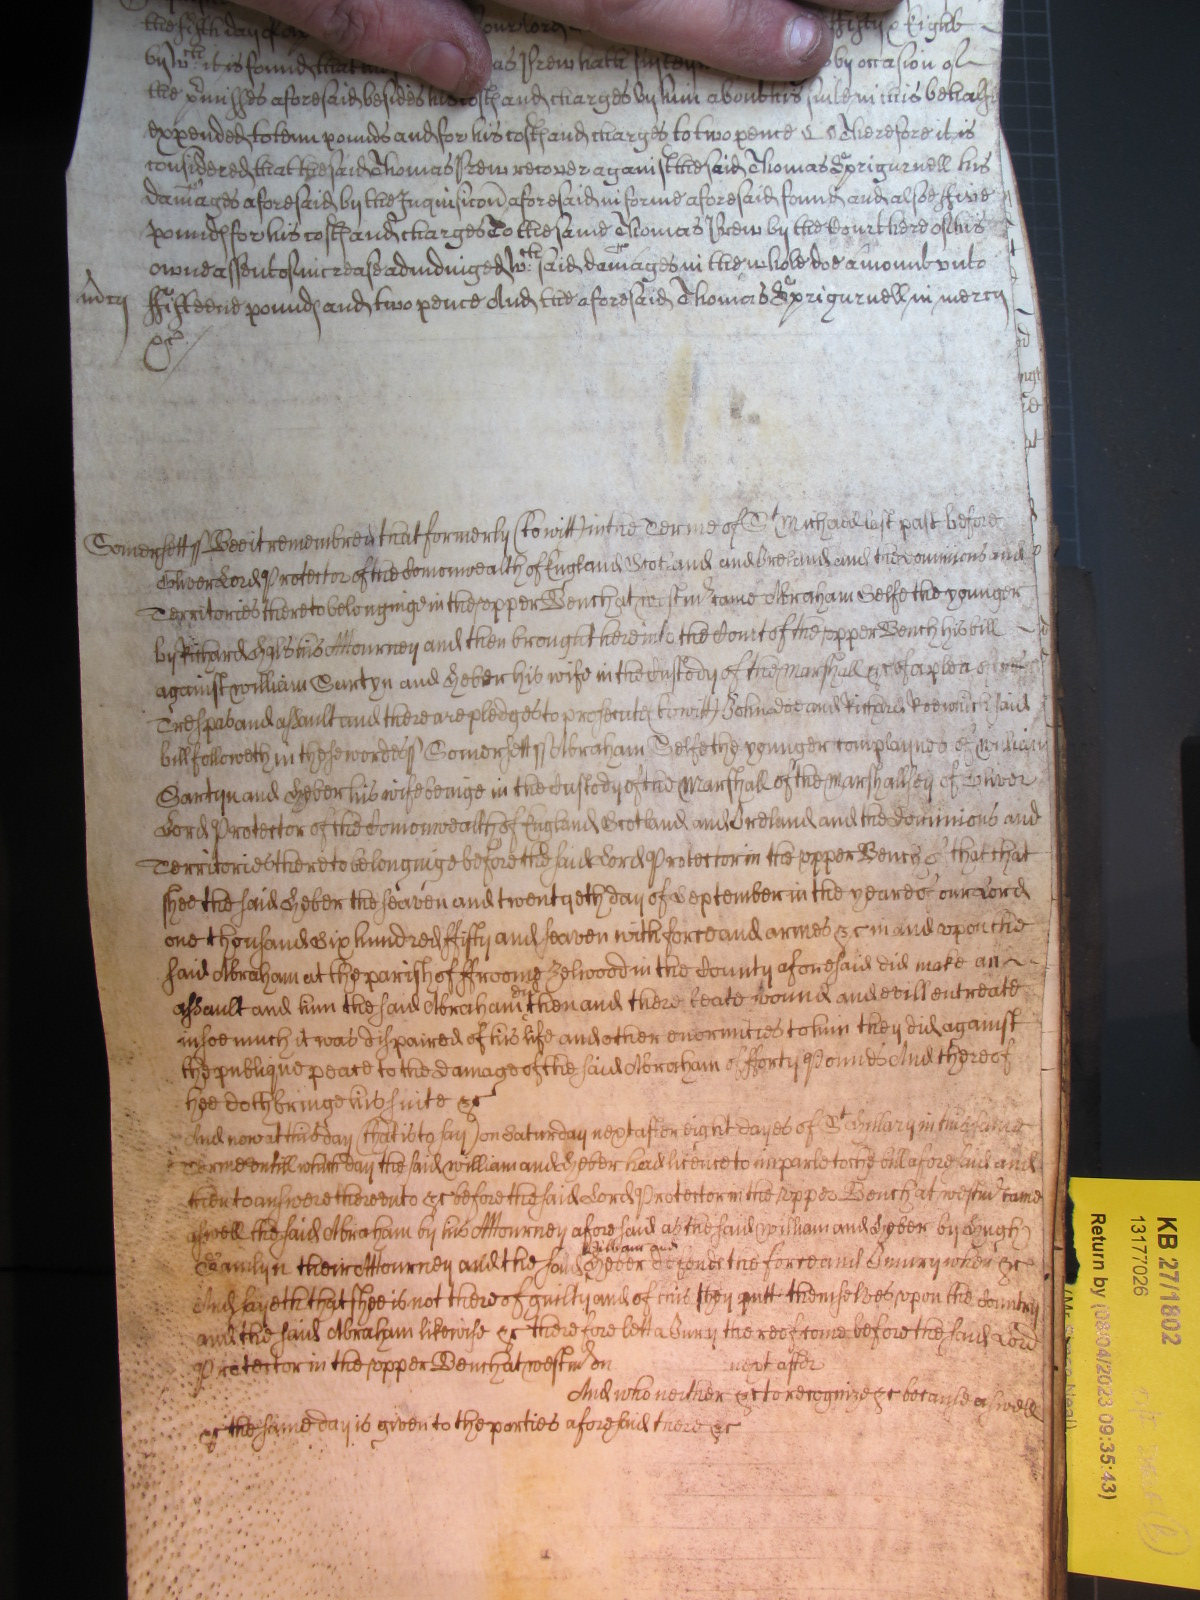 the fifth day of our Lord ffifty & Eight
by wch it is found that as Brew hath by occasion of
the p'misses aforesaid besides his costs and charges by him about his suite in this behalfe
expended to tenn pounds and for his costs and charges to two pence Therefore it is
considered that the said Thomas Brew recover against the said Thomas Sprigurnell his
damages aforesaid by the Inquisicon aforesaid in forme aforesaid found and alsoe ffive
pounds for his costs and charges To the same Thomas Brew by the Court here of his
owne assent of increase adiudged wch said damages in the whole doe amount unto
mercy
ffifteene pounds and two pence And the aforesaid Thomas Sprigurnell in mercy
&c
Somersett ss Bee it remembred that formerly (to witt) in the Terme of St Michaell last past before
Oliver Lord Protector of the Comonwealth of England Scotland and Ireland and the Dominions and
Territories thereto belonginge in the upper Bench at Westmr came Abraham Selfe the younger
by Richard his Attourney and then brought here into the Court of the upper Bench his bill
against William Sartyn and Heber his wife in the Custody of the Marshall &c of a plea of
Trespas and assault and there are pledges to prosecute (to witt) John Doe and Richard Roe which said
bill followeth in these wordes ss Somersett ss Abraham Selfe the younger complaynes of William
Sartyn and Heber his wife beinge in the Custody of the Marshall of the Marshallsey of Oliver
Lord Protector of the Comonwealth of England Scotland and Ireland and the Dominions and
Territories thereto belonginge before the said Lord Protector in the upper Bench of that that
shee the said Heber the seaven and twentyeth day of September in the yeare of our Lord
one thousand Six hundred ffifty and seaven with force and armes &c in and upon the
said Abraham at the parish of ffroome Zelwood in the County aforesaid did make an
assault and him the said Abraham did then and there beate wound and evill entreate
insoemuch it was dispaired of his life and other enormities to him they did against
the publique peace to the damage of the said Abraham of fforty Pounds And thereof
hee doth bringe his suite &c
And now at this day (that is to say) on Saturday next after eight dayes of St Hillary in this same
Terme untill which day the said William and Heber had licence to imparle to the bill aforesaid and
then to answere thereunto &c before the said Lord Protector in the upper Bench at Westmr came
aswell the said Abraham by his Attourney aforesaid as the said William and Heber by Hugh
their Attourney and the said William and Heber defends the force and Iniury when &c
And sayeth that shee is not thereof guilty and of this they putt themselves upon the Country
and the said Abraham likewise &c therefore lett a Iury thereof come before the said Lord
Protector in the upper Bench at Westmr on next after
And who neither &c to recognize &c because aswell
&c the same day is given to the parties aforesaid there &c
KB 27/1802
13177026
Return by (08/04/2023 09:35:43)